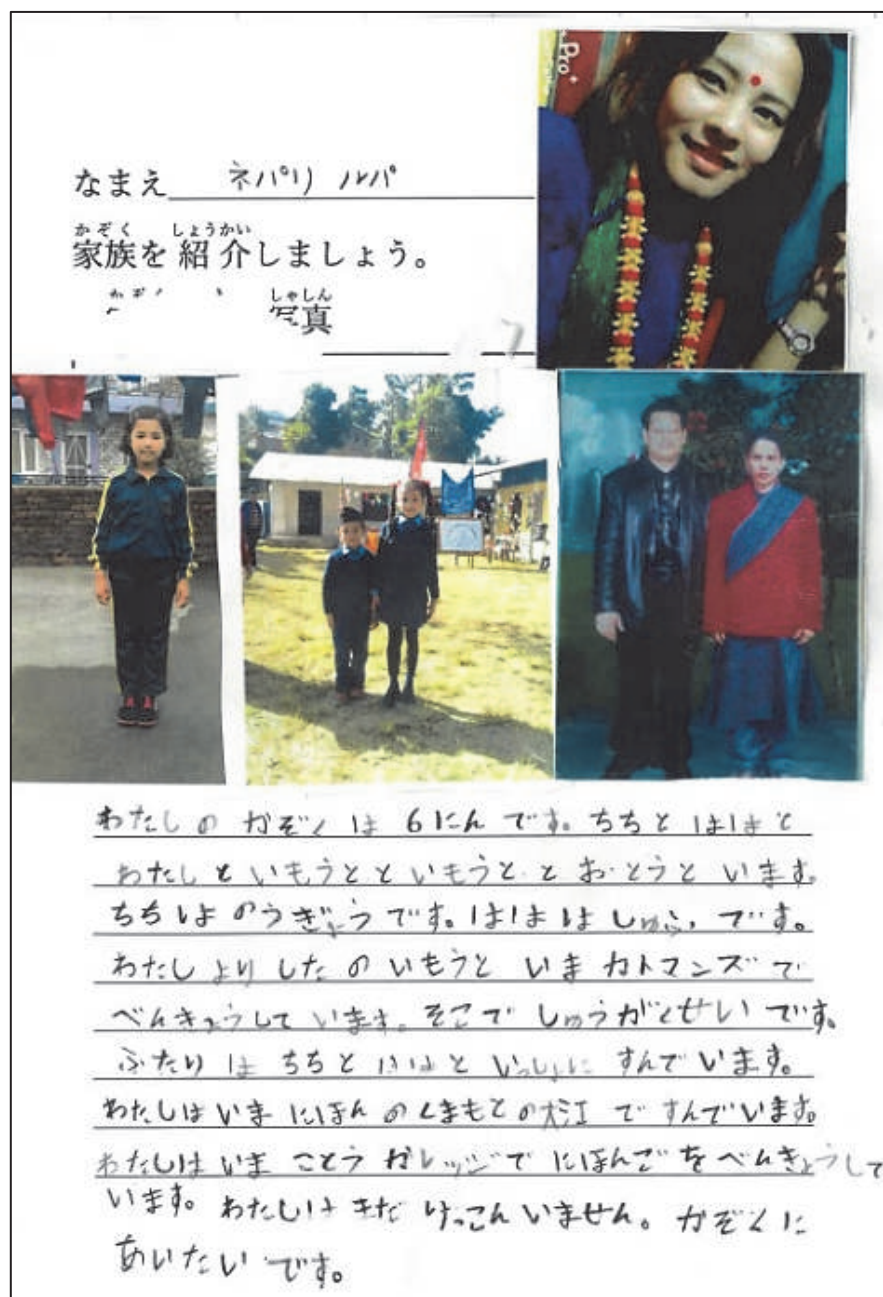 Pro
なまえ ネパリ ルパ
かぞく しょうかい
家族を紹介しましょう。
しゃしん
写真
わたしの かぞくは 6にんです。ちちと ははと
わたしと いもうとと いもうとと おとうと います。
ちちは のうぎょうです。ははは しゅふです。
わたしより したの いもうと いま カトマンズで
べんきょうして います。そこで しゅうがくせい です。
ふたりは ちちと ははと いっしょに すんでいます。
わたしは いま にほんの くまもとの 大江で すんでいます。
わたしは いま ことう カレッジで にほんごを べんきょうして
います。わたしは まだ けっこん いません。かぞくに
あいたい です。